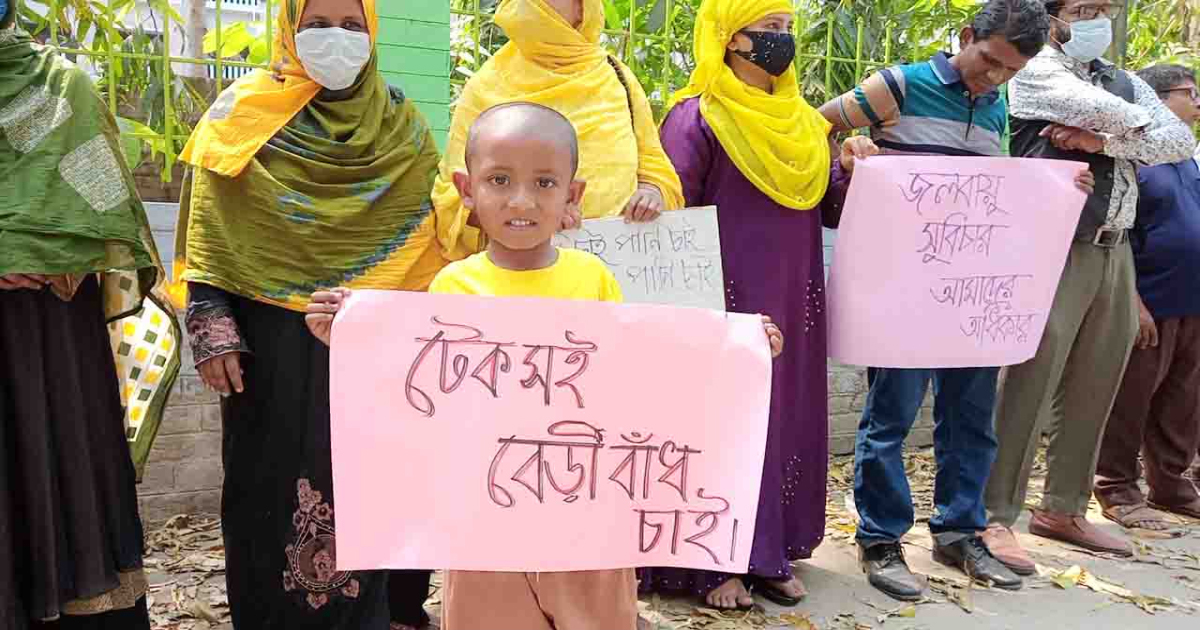 টেকসই
বেড়ীবাঁধ
চাই।
পানি চাই
চাই
জলবায়ু
সুবিচার
আমাদের
অধিকার